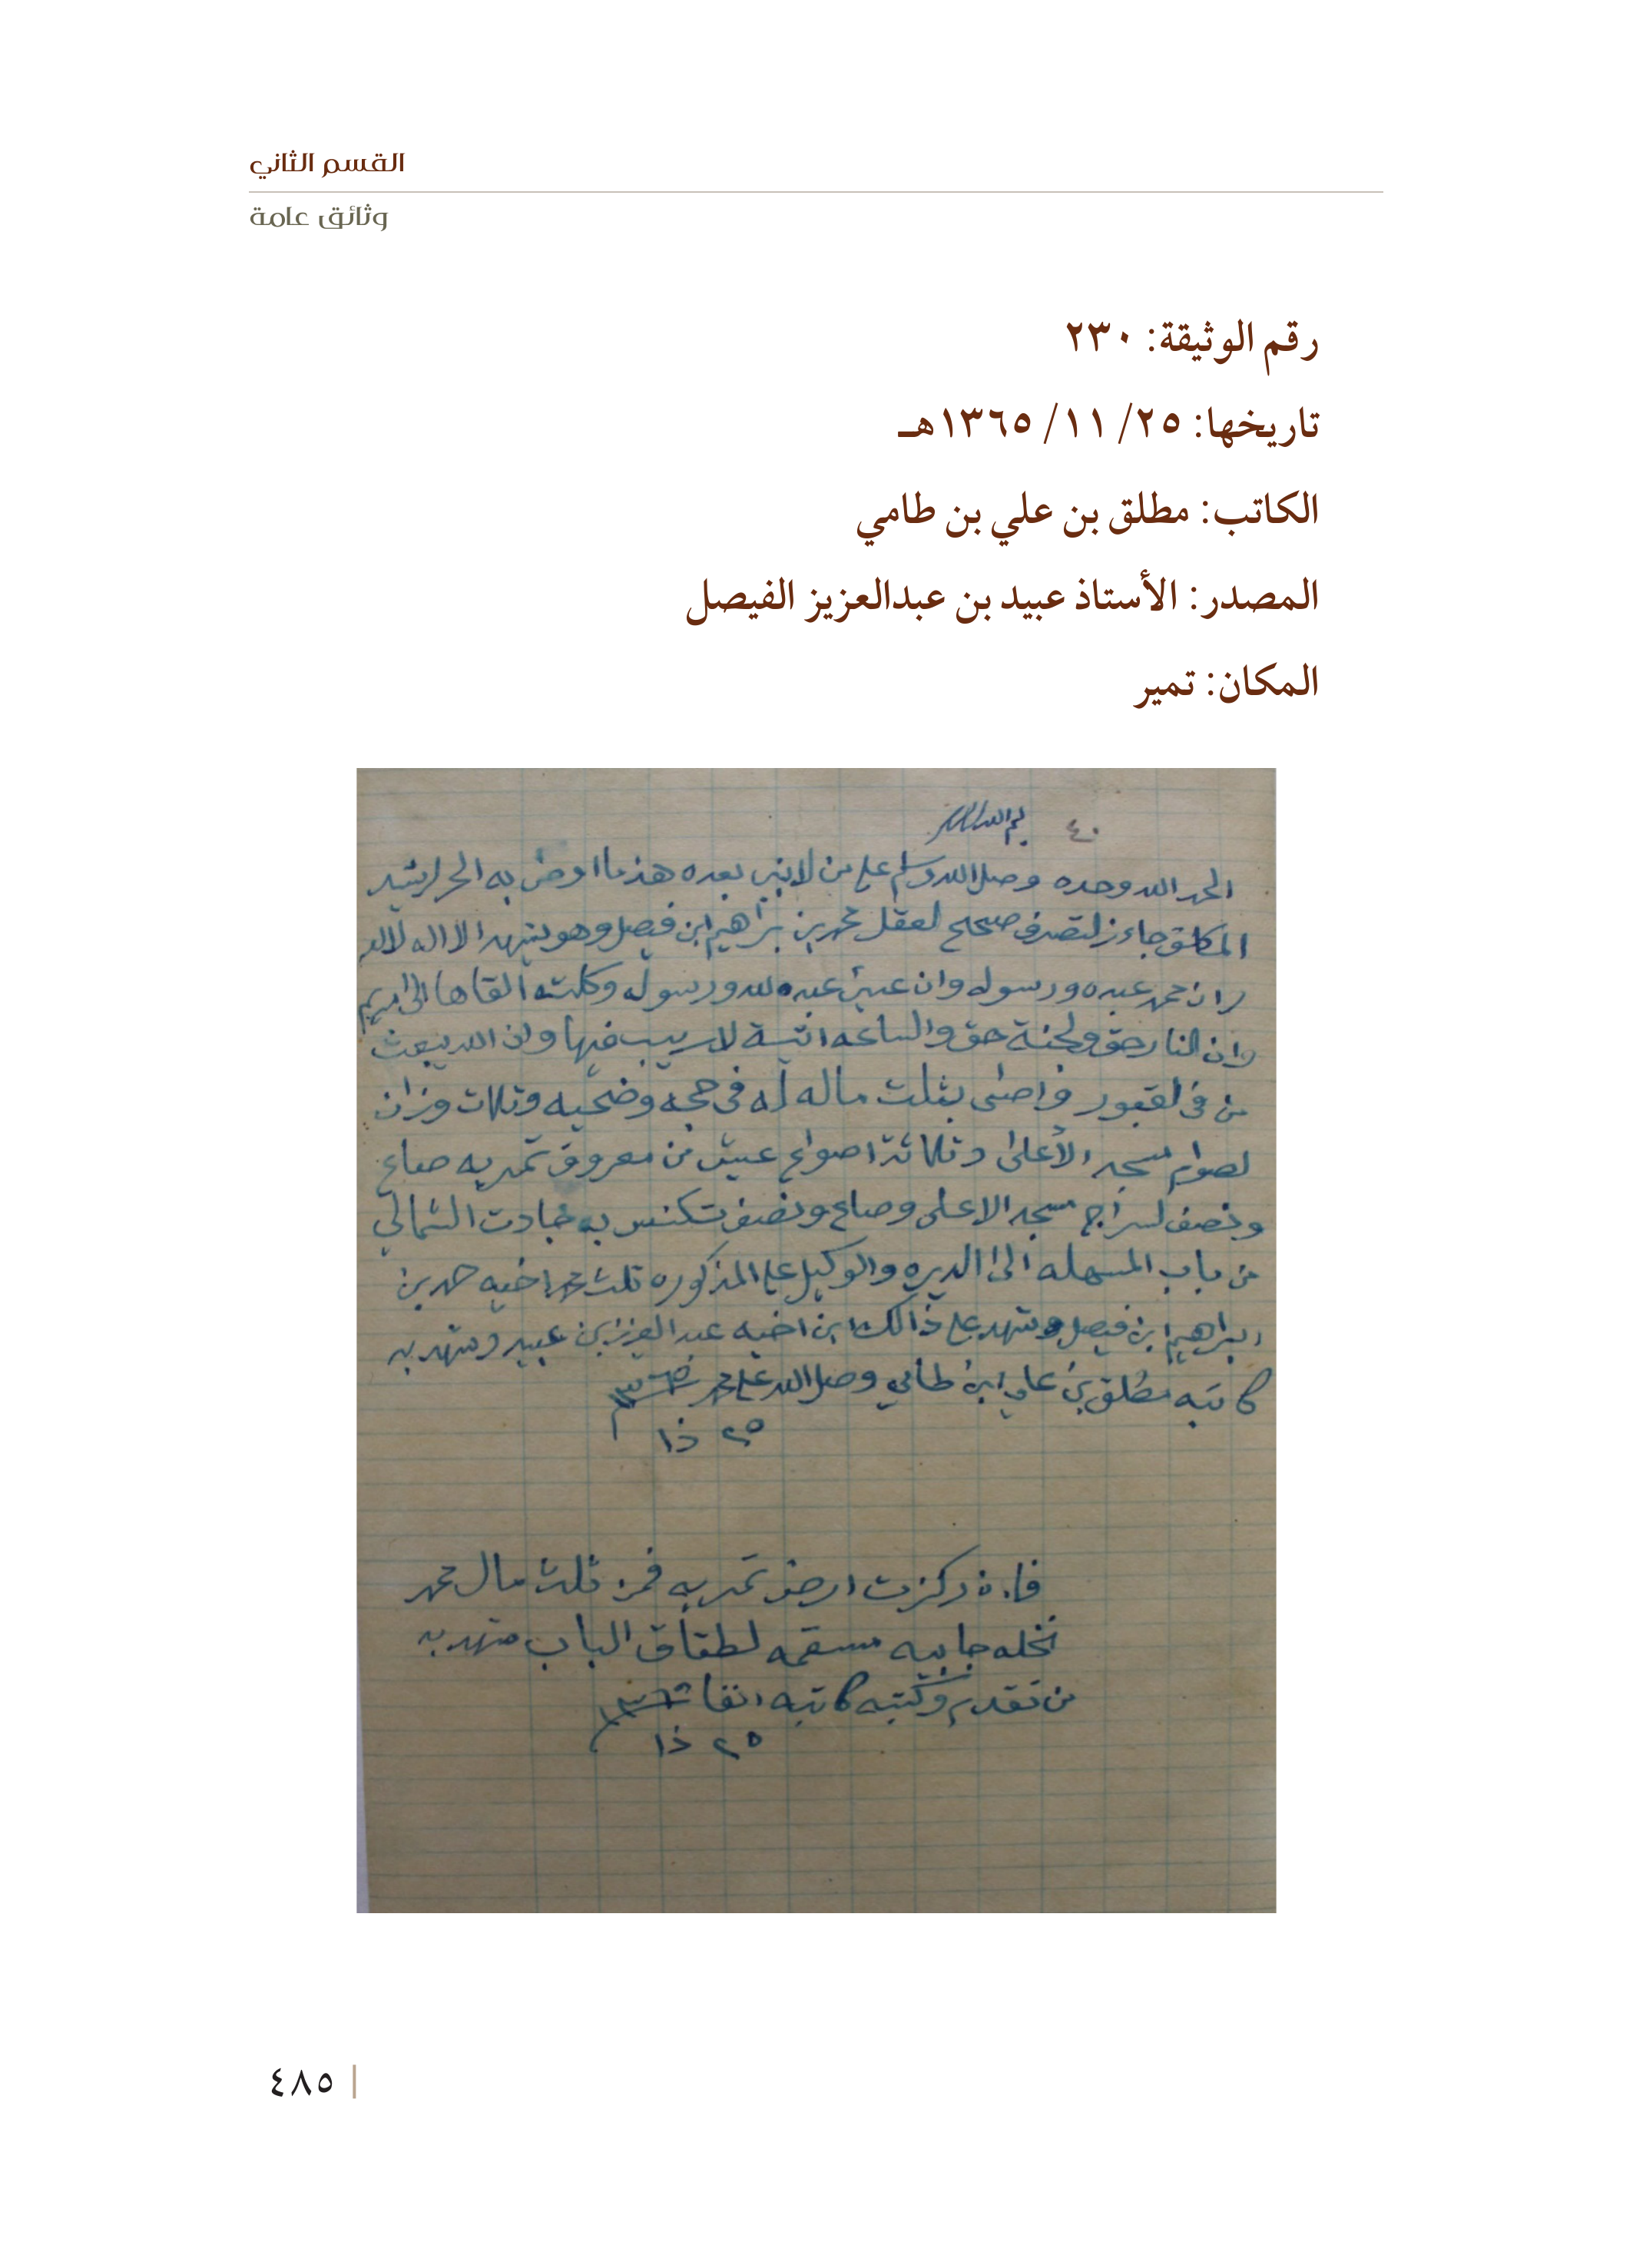 القسم الثاني
وثائق عامة
رقم الوثيقة: ٢٣٠
تاريخها: ٢٥/ ١١/ ١٣٦٥هـ
الكاتب: مطلق بن علي بن طامي
المصدر: الأستاذ عبيد بن عبدالعزيز الفيصل
المكان: تمير
٤٠
الحمد الله وحده وصلى الله وسلم على من لا نبي بعده هذ ما اوصى به الحر لرشيد
المكلف جاءز لتصرف صحيح لعقل محمد بن براهيم ابن فيصل وهو يشهد الا اله لا الله
وان محمد عبده ورسوله وان عيسى عبده لله ورسوله وكلمته القاها الى مريم
وان النار حق ولجنة حق والساعه اتية لا ريب فيها وان الله يبعث
من في لقبور واصى بثلث ماله له في حجه وضحيه وثلاث وزان
لصوام مسجد الأعلى وثلاثة اصواع عيش من معروف تمريه صاع
ونصف لسراج مسجد الاعلى وصاع ونصف تكنس به جادت الشمالي
من باب المسهله الى الديره والوكيل على المذكوره ثلث محمد اخيه حمد بن
ابراهيم ابن فيصل وشهد على ذالك ابن اخيه عبد العزيز بن عبيد وشهد به
كاتبه مطلق بن علي ابن طامي وصلى الله على محمد ١٣٦٥
٢٥ ذا
فان ركزت ارض تمريه فمن ثلث مال محمد
نخله جابيه مسقمه لطقاق الباب شهد به
من تقدم وكتبه كاتبه انفا ١٣٦٥
٢٥ ذا
٤٨٥